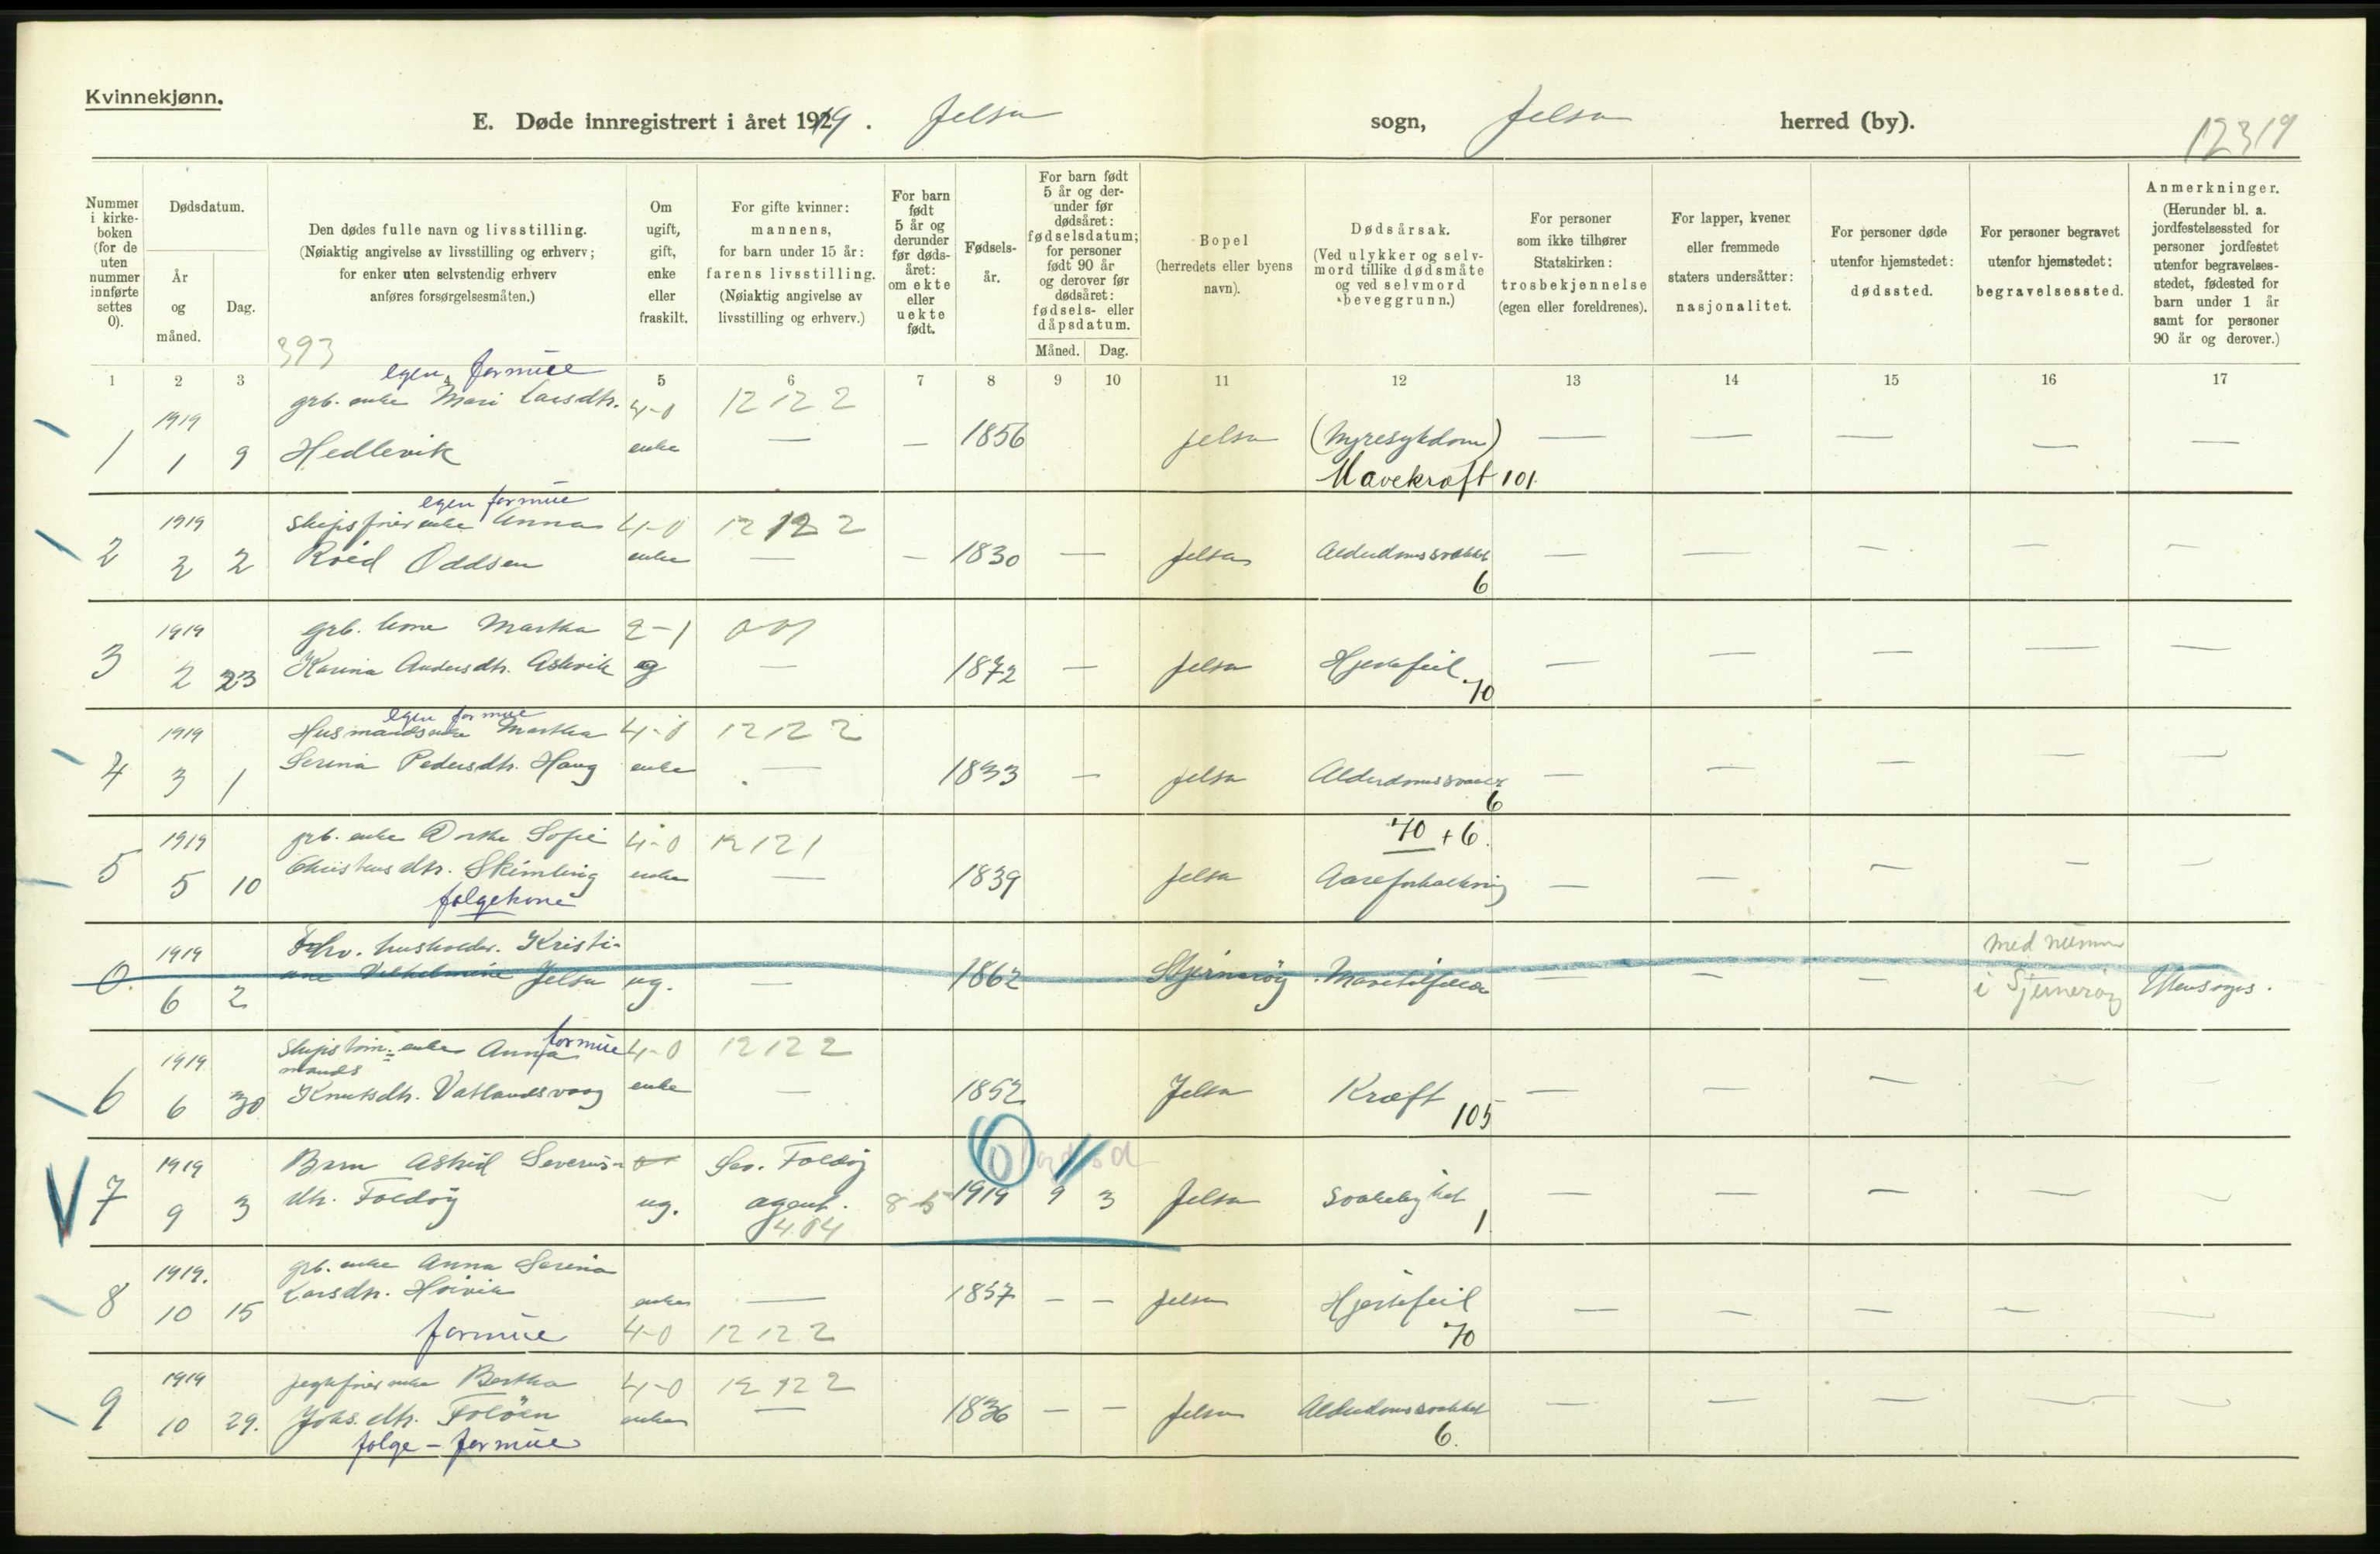 Kvinnekjønn.
E. Døde innregistrert i året 1919. Jelsa sogn, Jelsa herred (by).
12319
Nummer i kirke-boken (for de uten nummer innførte settes 0).
Dødsdatum.
År og måned.
Dag.
Den dødes fulle navn og livsstilling.
(Nøiaktig angivelse av livsstilling og erhverv;
for enker uten selvstendig erhverv
anføres forsørgelsesmåten.)
393
Om ugift, gift, enke eller fraskilt.
For gifte kvinner:
mannens,
for barn under 15 år:
farens livsstilling.
(Nøiaktig angivelse av
livsstilling og erhverv.)
For barn født 5 år og derunder før døds-året: om ekte eller uekte født.
Fødsels-år.
For barn født 5 år og der-under før dødsåret: fødselsdatum; for personer født 90 år og derover før dødsåret: fødsels- eller dåpsdatum.
Måned. Dag.
Bopel
(herredets eller byens
navn).
Dødsårsak.
(Ved ulykker og selv-
mord tillike dødsmåte
og ved selvmord
beveggrunn.)
For personer
som ikke tilhører
Statskirken:
trosbekjennelse
(egen eller foreldrenes).
For lapper, kvener
eller fremmede
staters undersåtter:
nasjonalitet.
For personer døde
utenfor hjemstedet:
dødssted.
For personer begravet
utenfor hjemstedet:
begravelsessted.
Anmerkninger.
(Herunder bl. a.
jordfestelsessted for
personer jordfestet
utenfor begravelses-
stedet, fødested for
barn under 1 år
samt for personer
90 år og derover.)
1 2 3 4 5 6 7 8 9 10 11 12 13 14 15 16 17
egen formue
1919 grb. enke Mari Larsdtr. 4-0 12 12 2
1 1 9 Hedlevik enke — — 1856 Jelsa (Nyresykdom) — — — — —
Mavekræft 101.
egen formue
1919 skipsfører enke Anna 4-0 12 12 2
2 2 2 Roed Oddsen enke — — 1830 — Jelsa Alderdomssvakhet — — — — —
6
1919 grb. kone Martha 2-1 001
3 2 23 Karina Andersdtr. Askvik g — 1872 — Jelsa Hjertefeil — — — — —
70
egen formue
1919 Husmandsenke Martha 4-0 12 12 2
4 3 1 Serina Pedersdtr. Haug enke — 1833 — Jelsa Alderdomssvakh — — — — —
6
1919 grb. enke Dorthe Sofie 4-0 12 12 1 70 + 6.
5 5 10 Christensdtr. Skimling enke — 1839 Jelsa Aareforkalkning — — — — —
følgekone
1919 Fhv. husholder. Kristi- med numm
0. 6 2 ane Vilhelmine Jelsa ug. — 1862 Stjernerøy Mavetilfælde — — — i Sjernerøy
1919 skipstøm.- enke Anna formue 4-0 12 12 2
mands
6 6 30 Knutsdtr. Vatlandsvaag enke — 1852 Jelsa Kræft — — — — —
105
1919 Barn Astrid Severins- Sev. Foldøy
7 9 3 dtr. Foldøy ug. agent. 8-5 1919 9 3 Jelsa svakelighet — — — — —
404 1
1919. grb. enke Anna Serina
8 10 15 Larsdtr. Høivik enke — 1837 — — Jelsa Hjertefeil — — — — —
formue 4-0 12 12 2 70
1919 jegtfører enke Bertha 4-0 12 12 2
9 10 29. Johs.dtr. Foløen enke — 1836 — — Jelsa Alderdomssvakhet — — — — —
følge - formue 6.